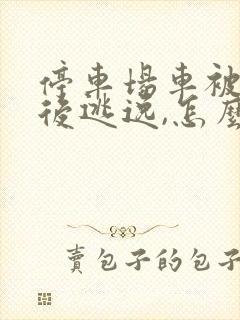 停車場車被
後逃逸,怎麼
賣包子的包子